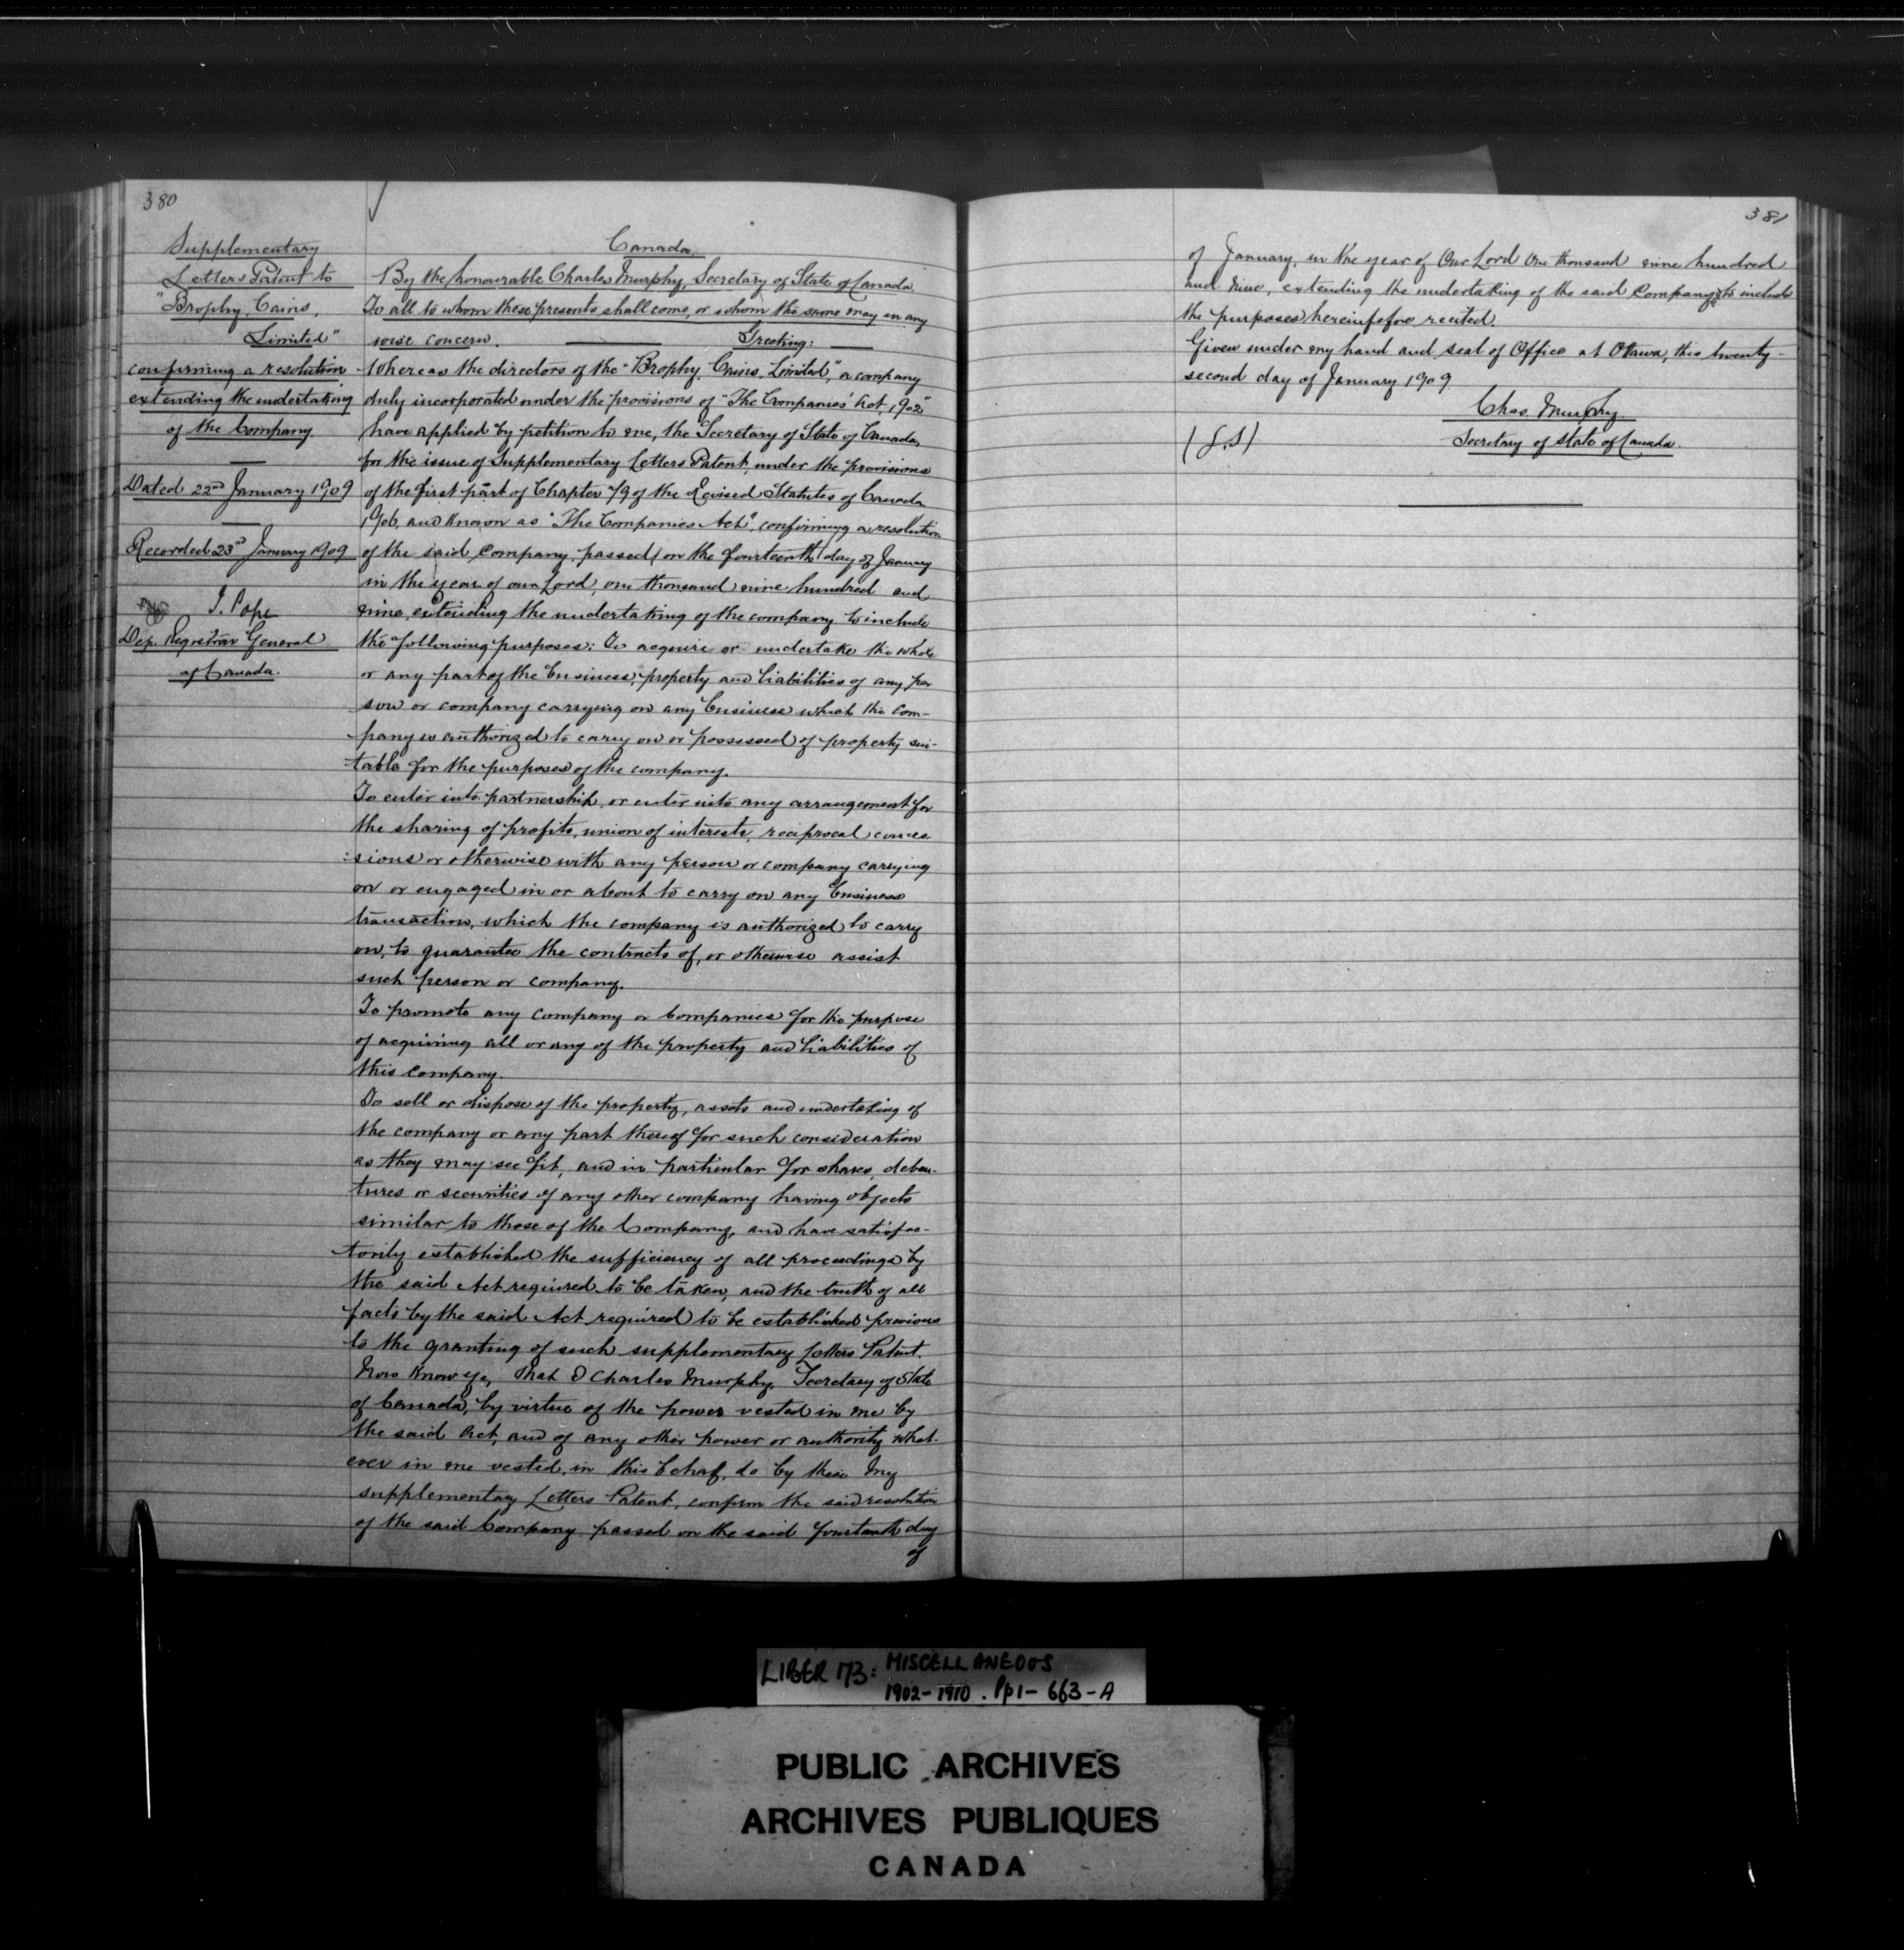 380
Supplementary
Letters Patent to
"Brophy, Cains,
Limited"
confirming a resolution
extending the undertaking
of the Company.
Dated 22nd January 1909
Recorded 23rd January 1909
J. Pope
Dep. Registrar General
of Canada.
Canada.
By the honourable Charles Murphy, Secretary of State of Canada.
To all to whom these presents shall come, or whom the same may in any
wise concern. Greeting:
Whereas the directors of the "Brophy, Cains, Limited", a company
duly incorporated under the provisions of "The Companies' Act, 1902"
have applied by petition to me, the Secretary of State of Canada,
for the issue of Supplementary Letters Patent, under the provisions
of the first part of Chapter 79 of the Revised Statutes of Canada
1906, and known as "The Companies Act", confirming a resolution
of the said Company, passed on the fourteenth day of January
in the year of our Lord, one thousand nine hundred and
nine, extending the undertaking of the company to include
the following purposes: To acquire or undertake the whole
or any part of the business, property and liabilities of any per
son or company carrying on any business which the com-
pany is authorized to carry on or possessed of property sui-
table for the purposes of the company.
To enter into partnership, or enter into any arrangement for
the sharing of profits, union of interests, reciprocal conces
sions or otherwise with any person or company carrying
on or engaged in or about to carry on any business
transaction, which the company is authorized to carry
on, to guarantee the contracts of, or otherwise assist
such person or company.
To promote any company or companies for the purpose
of acquiring all or any of the property and liabilities of
this company.
To sell or dispose of the property, assets and undertaking of
the company or any part thereof for such consideration
as they may see fit, and in particular for shares, deben-
tures or securities of any other company having objects
similar to those of the Company, and have satisfac-
torily established the sufficiency of all proceedings by
the said Act required to be taken, and the truth of all
facts by the said Act required to be established previous
to the granting of such supplementary Letters Patent.
Now Know Ye, that I Charles Murphy, Secretary of State
of Canada, by virtue of the power vested in me by
the said Act, and of any other power or authority what-
ever in me vested, in this behalf, do by these my
supplementary Letters Patent, confirm the said resolution
of the said Company, passed on the said fourteenth day
of
381
of January, in the year of Our Lord One thousand nine hundred
and nine, extending the undertaking of the said Company to include
the purposes hereinbefore recited.
Given under my hand and seal of Office at Ottawa, this twenty-
second day of January 1909
Chas. Murphy.
(L.S) Secretary of State of Canada.
LIBER 173: MISCELLANEOUS
1902-1910. Pp1-663-A
PUBLIC ARCHIVES
ARCHIVES PUBLIQUES
CANADA